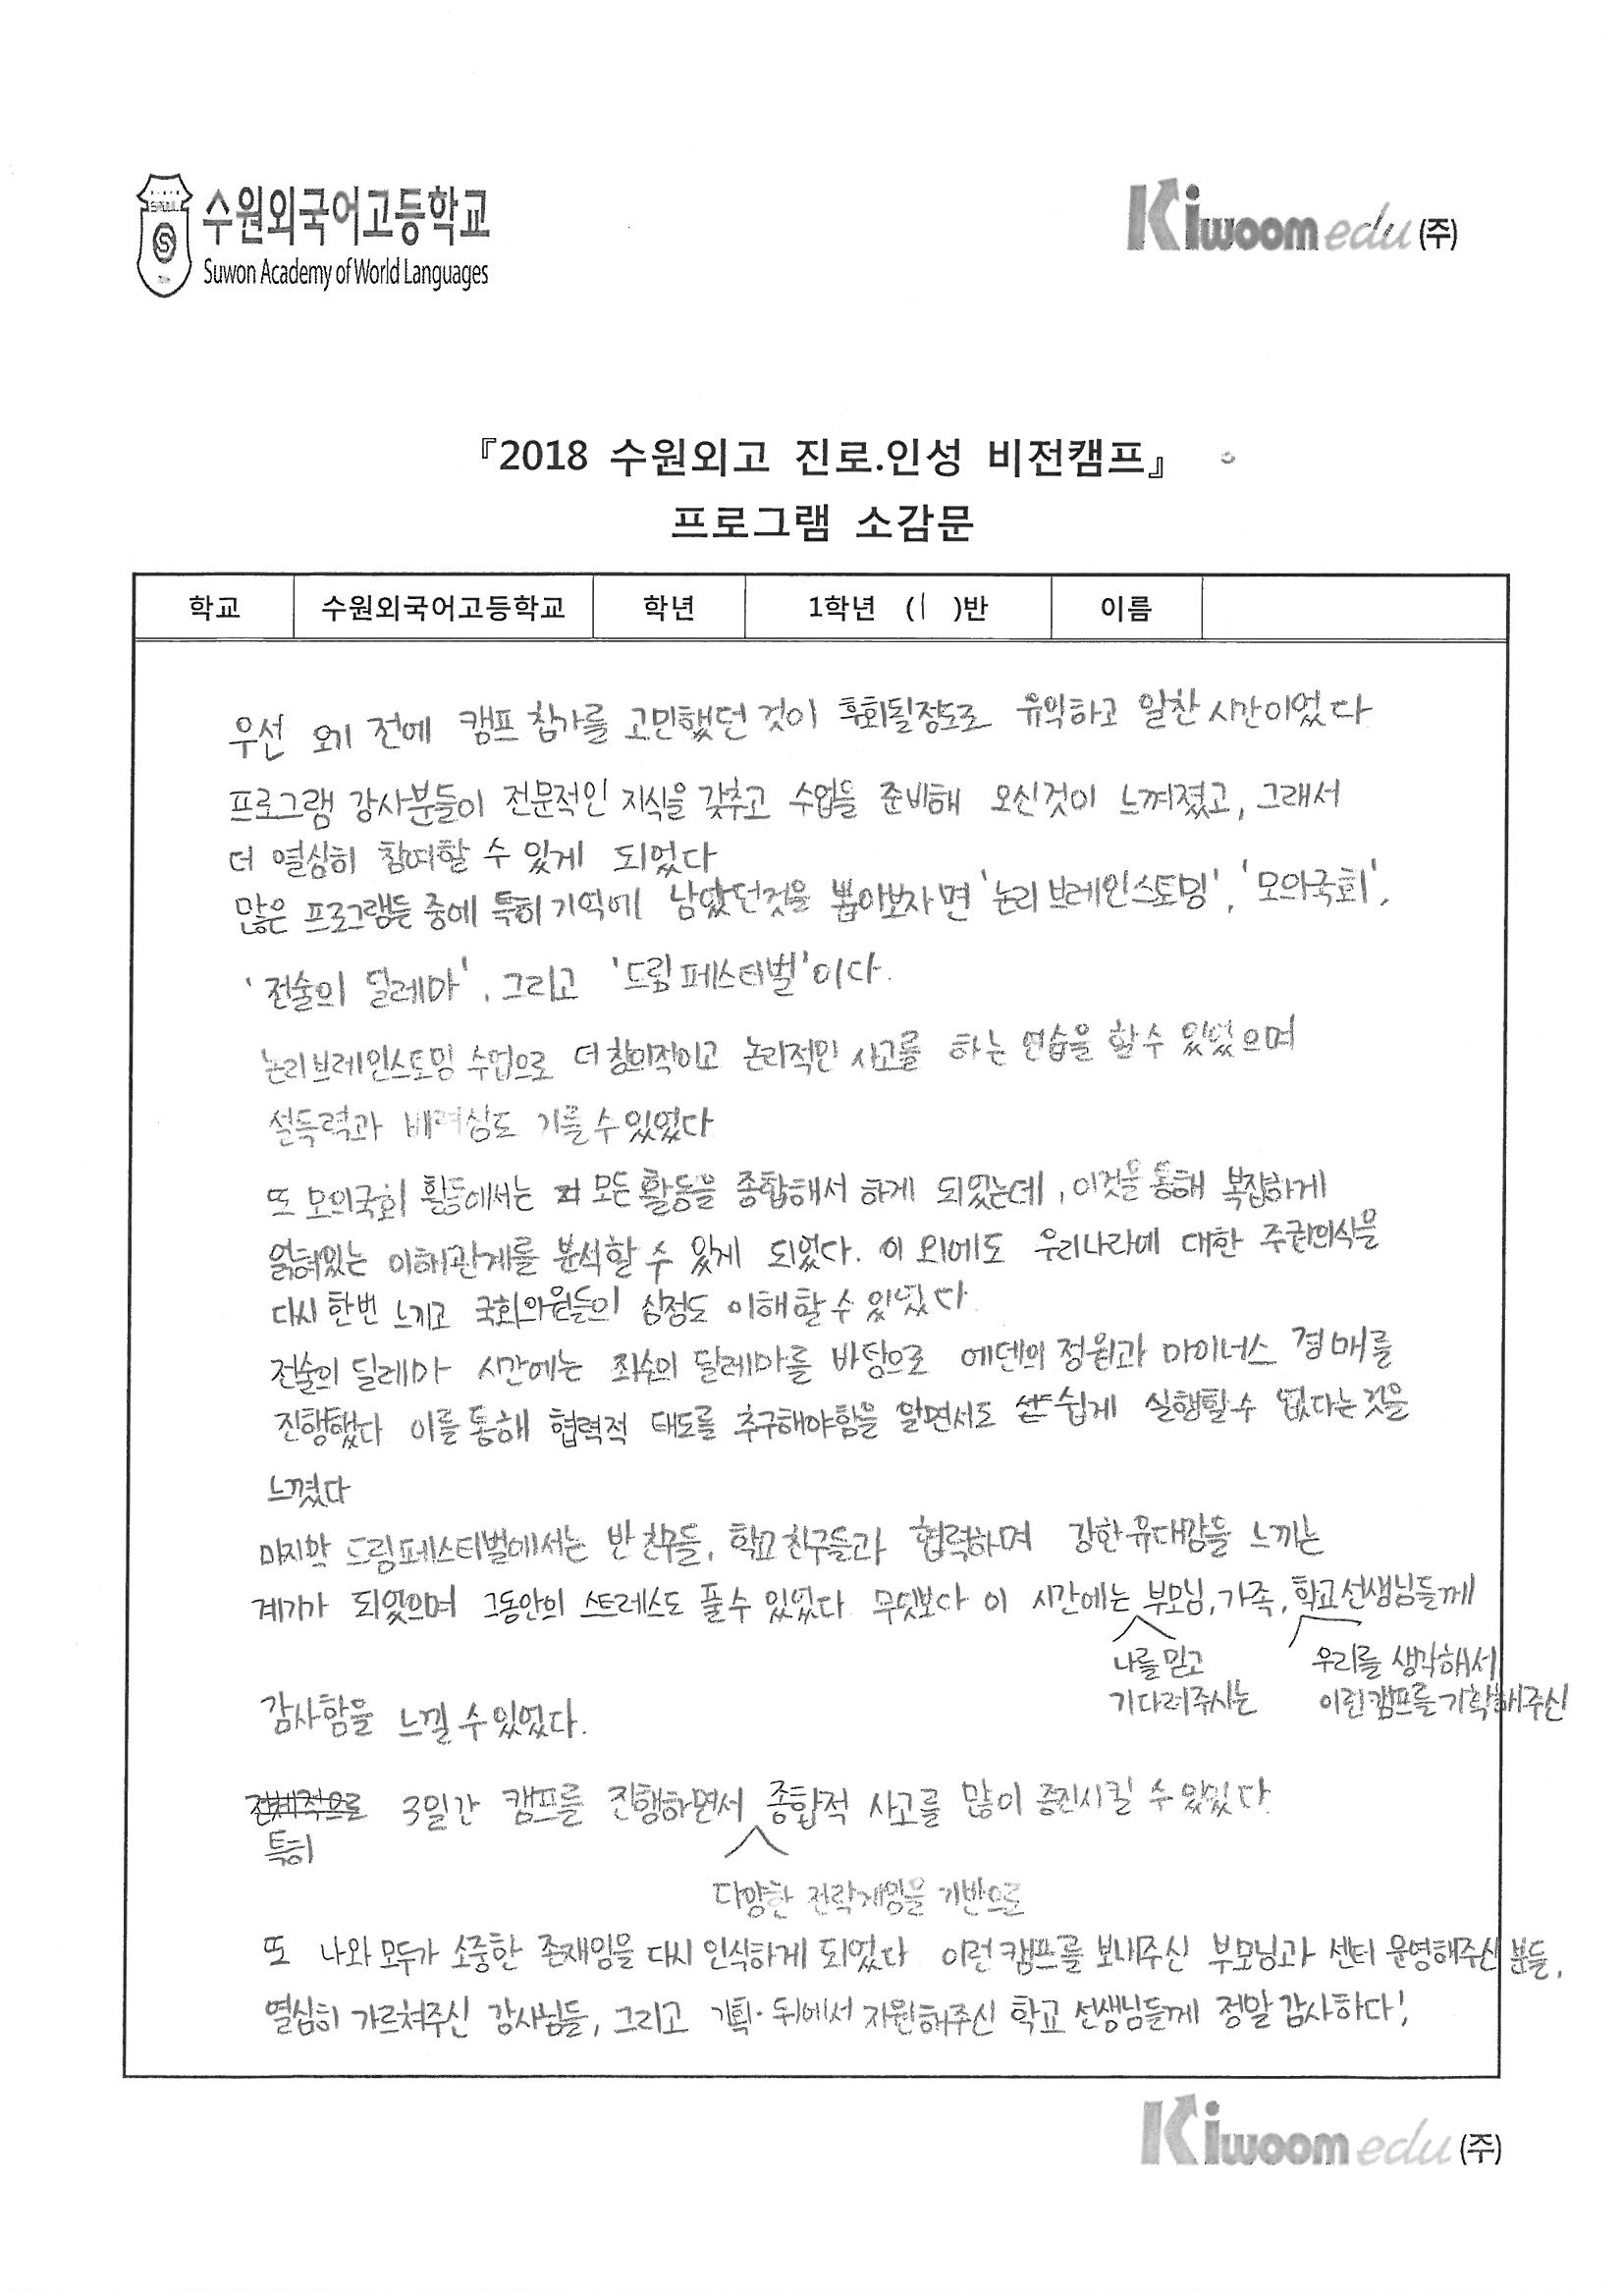 수원외국어고등학교
Suwon Academy of World Languages
Kiwoom edu (주)
『2018 수원외고 진로.인성 비전캠프』
프로그램 소감문
학교 수원외국어고등학교 학년 1학년 (1 )반 이름
우선 오기 전에 캠프 참가를 고민했던 것이 후회될정도로 유익하고 알찬 시간이었다
프로그램 강사분들이 전문적인 지식을 갖추고 수업들 준비해 오신것이 느껴졌고, 그래서
더 열심히 참여할 수 있게 되었다
많은 프로그램들 중에 특히 기억에 남았던것을 뽑아보자면 '논리 브레인스토밍', '모의국회',
'전술의 딜레마', 그리고 '드림 페스티벌'이다.
논리 브레인스토밍 수업으로 더 창의적이고 논리적인 사고를 하는 연습을 할 수 있었으며
설득력과 배려심도 기를 수 있었다
또 모의국회 활동에서는 모든 활동을 종합해서 하게 되었는데, 이것을 통해 복잡하게
얽혀있는 이해관계를 분석할 수 있게 되었다. 이 외에도 우리나라에 대한 주권의식을
다시 한번 느끼고 국회의원들의 심정도 이해할 수 있었다
전술의 딜레마 시간에는 죄수의 딜레마를 바탕으로 에덴의 정원과 마이너스 경매를
진행했다 이를 통해 협력적 태도를 추구해야함을 알면서도 쉽게 실행할 수 없다는 것을
느꼈다
마지막 드림페스티벌에서는 반 친구들, 학교 친구들과 협력하며 강한 유대감을 느끼는
계기가 되었으며 그동안의 스트레스도 풀 수 있었다 무엇보다 이 시간에는 부모님, 가족, 학교선생님들께
나를 믿고 우리를 생각해서
기다려주시는 이런 캠프를 기획해주신
감사함을 느낄 수 있었다.
전체적으로 3일간 캠프를 진행하면서 종합적 사고를 많이 증진시킬 수 있었다
특히
다양한 전략게임을 기반으로
또 나와 모두가 소중한 존재임을 다시 인식하게 되었다 이런 캠프를 보내주신 부모님과 센터 운영해주신 분들,
열심히 가르쳐주신 강사님들, 그리고 기획·뒤에서 지원해주신 학교 선생님들께 정말 감사하다!
Kiwoom edu (주)